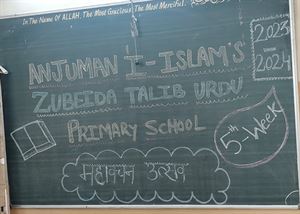 In The Name Of ALLAH, The Most Gracious The Most Merciful.
ANJUMAN-I-ISLAM'S
2023
2024
ZUBEIDA TALIB URDU
PRIMARY SCHOOL
5th-Week
महावाचन उत्सव